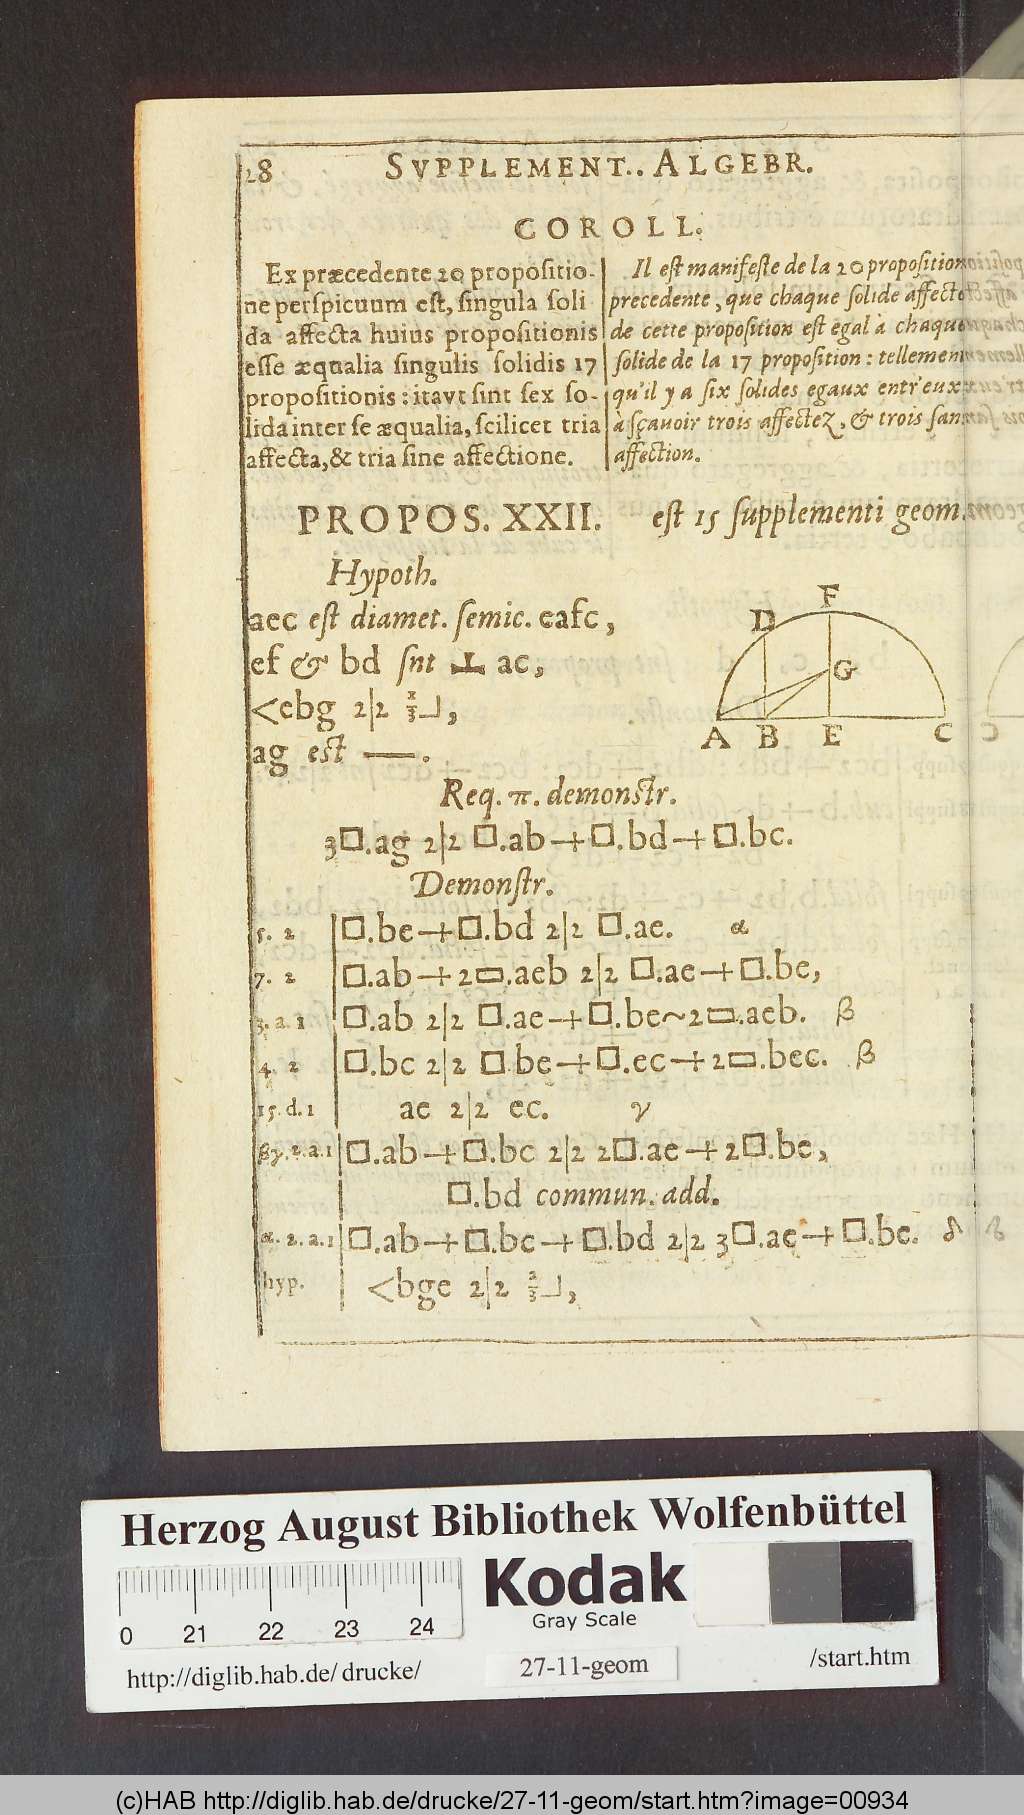 28 SVPPLEMENT.. ALGEBR.
COROLL.
Ex præcedente 20 propositio-
ne perspicuum est, singula soli
da affecta huius propositionis
esse æqualia singulis solidis 17
propositionis: itavt sint sex so-
lida inter se æqualia, scilicet tria
affecta, & tria sine affectione.
Il est manifeste de la 20 proposition
precedente, que chaque solide affecté
de cette proposition est egal à chaque
solide de la 17 proposition: tellement
qu'il y a six solides egaux entr'eux
à sçavoir trois affectez, & trois sans
affection.
PROPOS. XXII. est 15 supplementi geom.
Hypoth.
aec est diamet. semic. eafc,
ef & bd snt ⊥ ac,
<ebg 2|2 ⅔⅃,
ag est —.
F
D
G
A B E C
Req. π. demonstr.
3□.ag 2|2 □.ab+□.bd+□.bc.
Demonstr.
5. 2 | □.be+□.bd 2|2 □.ae. α
7. 2 | □.ab+2▭.aeb 2|2 □.ae+□.be,
3. a. 1 | □.ab 2|2 □.ae+□.be~2▭.aeb. β
4. 2 | □.bc 2|2 □.be+□.ec+2▭.bec. β
15. d. 1 | ae 2|2 ec. γ
βγ. 2. a. 1 | □.ab+□.bc 2|2 2□.ae+2□.be,
□.bd commun. add.
α. 2. a. 1 | □.ab+□.bc+□.bd 2|2 3□.ae+□.be. δ
hyp. | <bge 2|2 ⅔⅃,
Herzog August Bibliothek Wolfenbüttel
Kodak
Gray Scale
0 21 22 23 24
http://diglib.hab.de/drucke/ 27-11-geom /start.htm
(c)HAB http://diglib.hab.de/drucke/27-11-geom/start.htm?image=00934